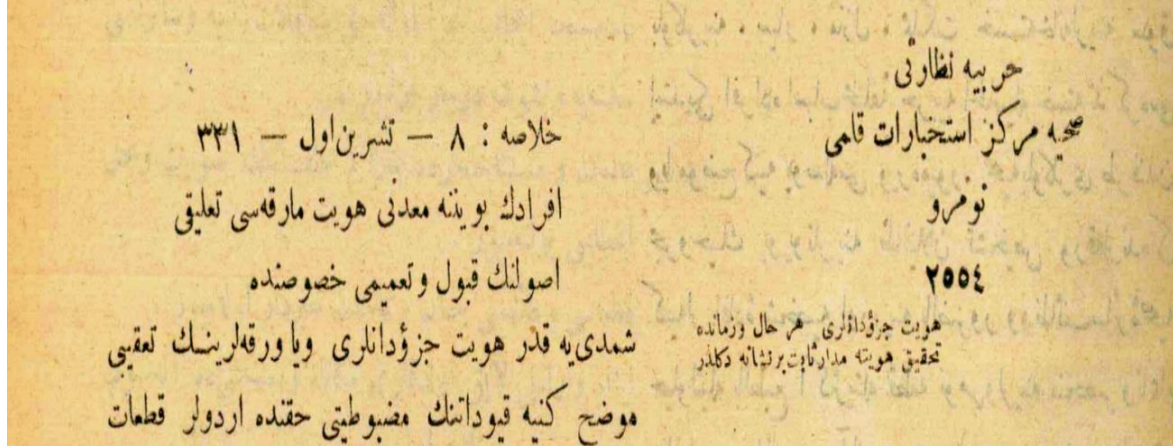 حربیه نظارتی
صحیه مركز استخبارات قلمی
نومرو
٢٥٥٤
هویت جزؤدانلری هر حال وزمانده
تحقیق هویته مدار ثابت بر نشانه دكلدر
خلاصه : ٨ — تشرین اول — ٣٣١
افرادك بویننه معدنی هویت مارقه‌سی تعلیقی
اصولنك قبول وتعمیمی خصوصنده
شمدی‌یه قدر هویت جزؤدانلری ویا ورقه‌لرینك تعقیبی
موضح كنیه قیوداتنك مضبوطیتی حقنده اردولر قطعات